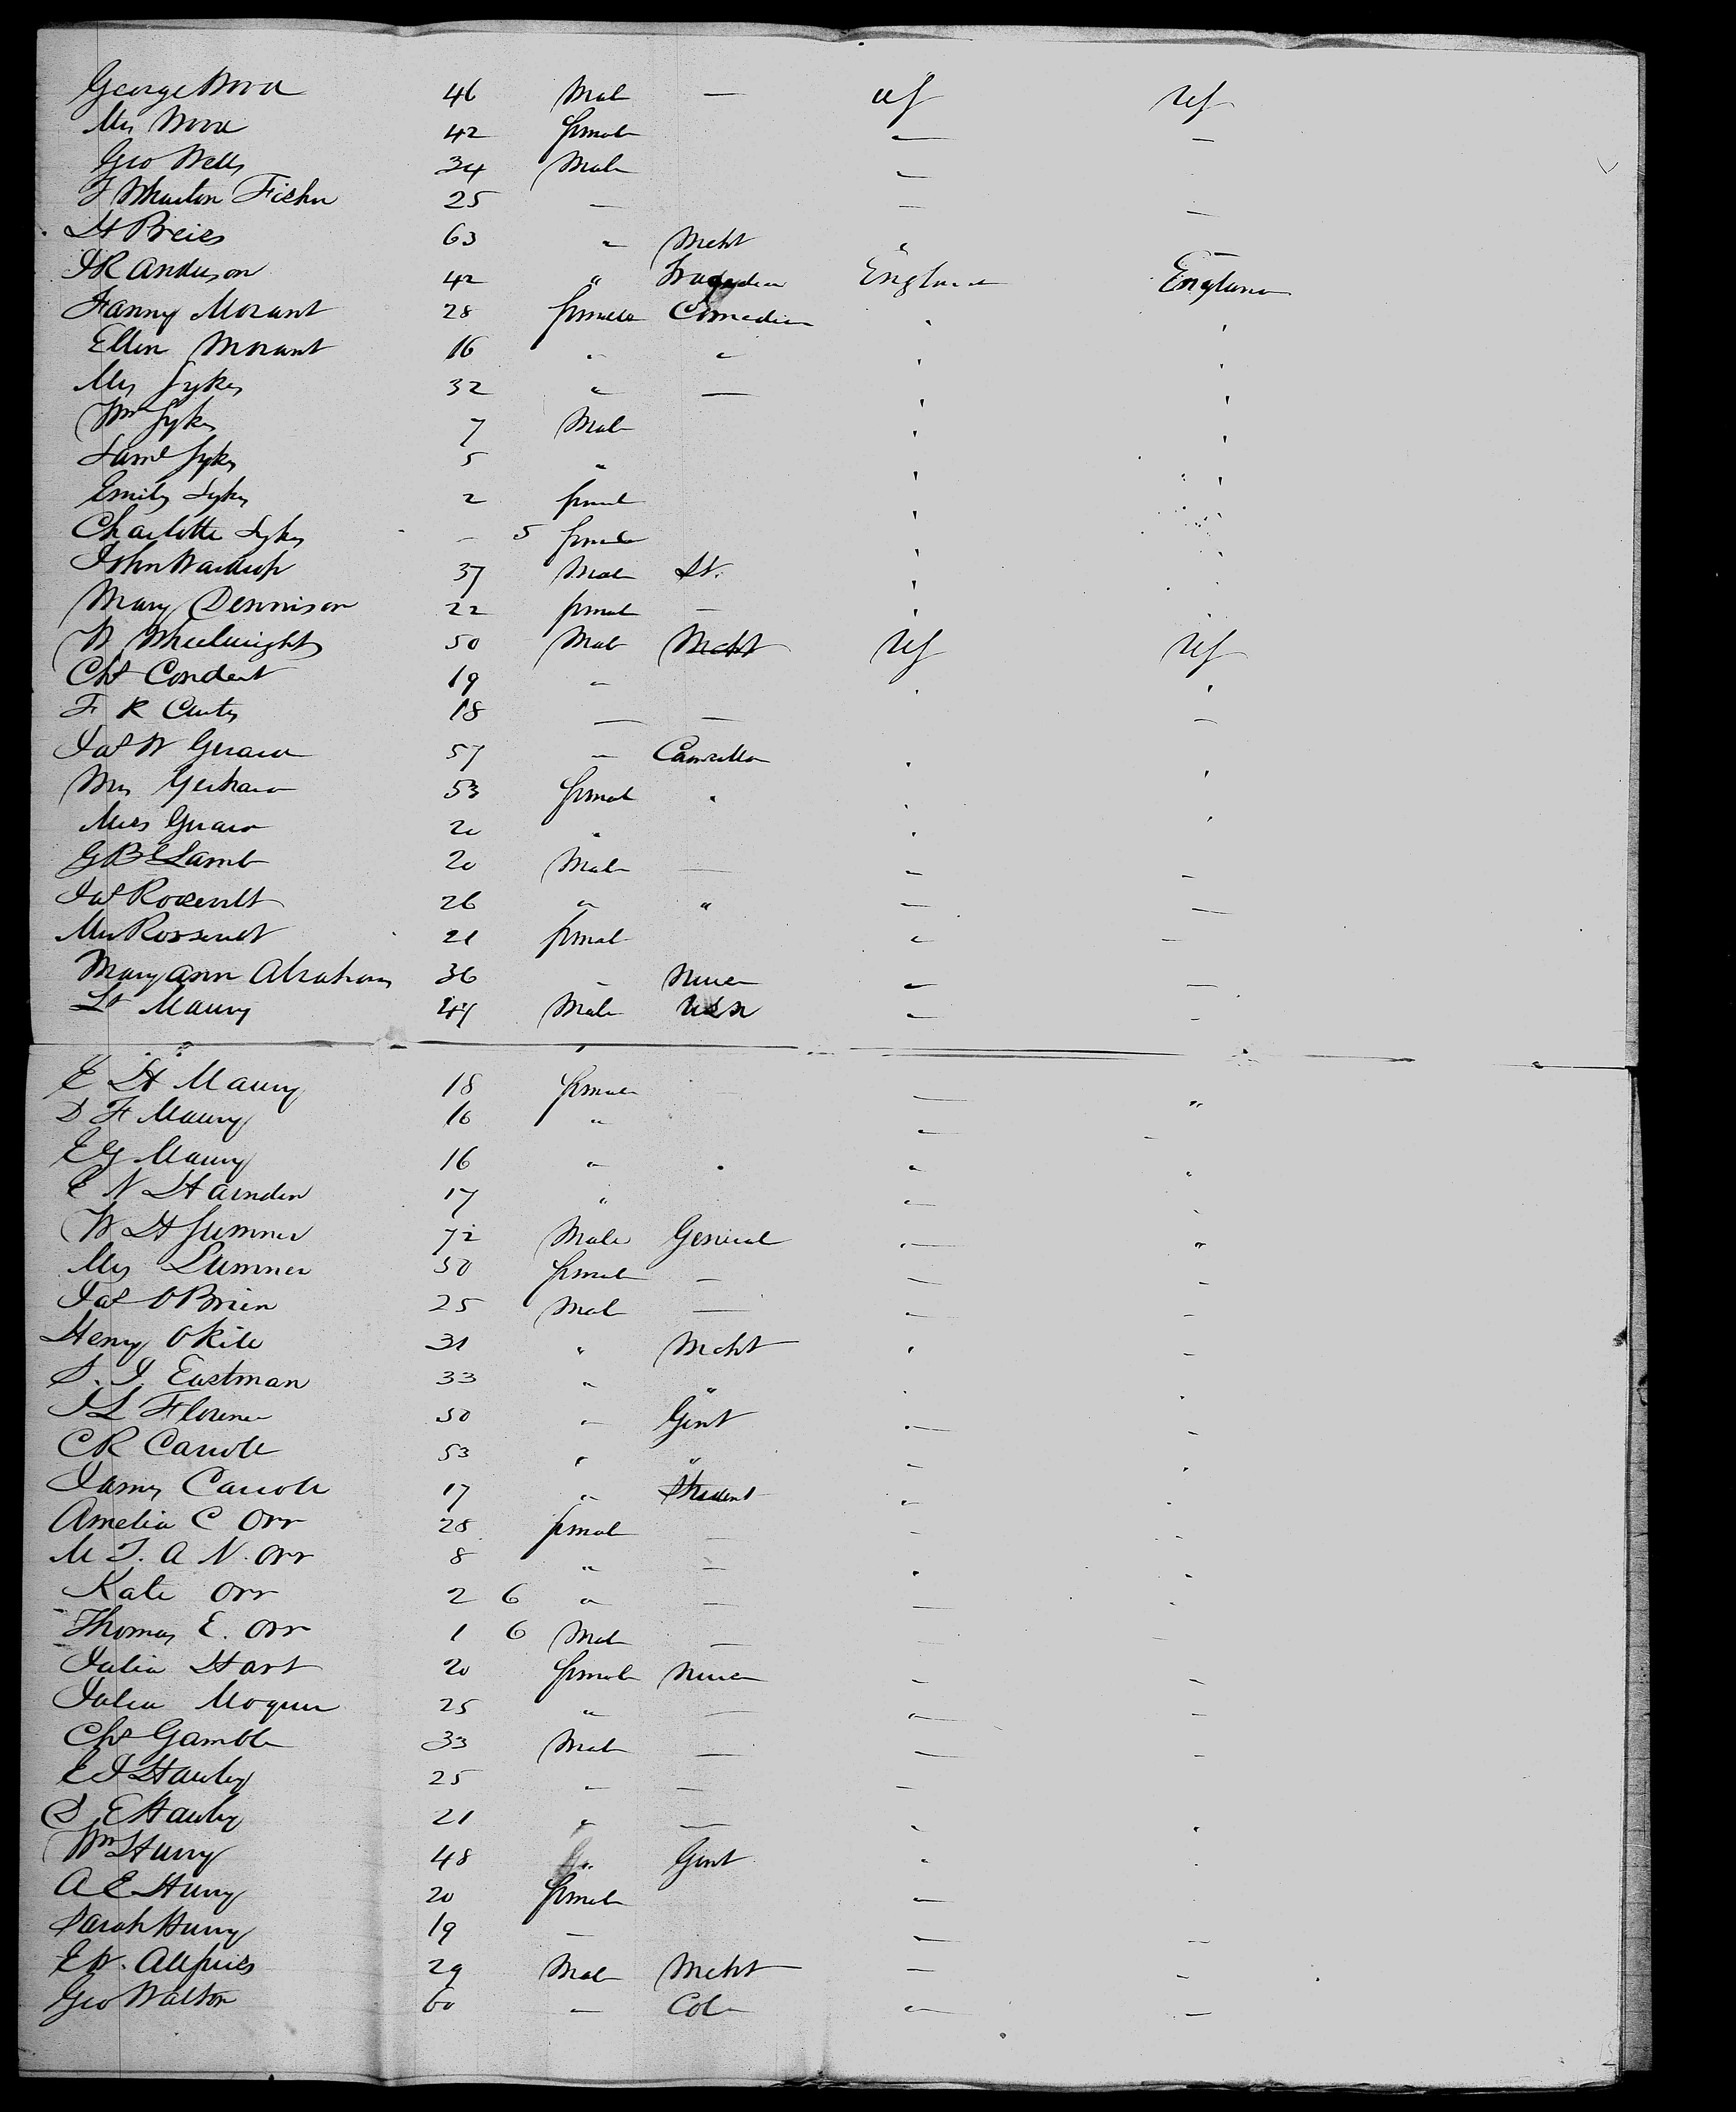 George Wood 46 Male — US US
Mrs Wood 42 female — —
Geo Wells 34 Male —
F Wharton Fisher 25 — — —
H Preies 63 " Mcht " —
J R Anderson 42 " Tragedian England England
Fanny Morant 28 female Comedian ' '
Ellen Morant 16 " " ' '
Mrs Sykes 32 " — ' '
Wm Sykes 7 Male ' '
Saml Sykes 5 " ' '
Emily Sykes 2 female ' '
Charlotte Sykes — 5 female ' '
John Wardrop 37 Male Dr. ' '
Mary Dennison 22 female — ' '
W Wheelwright 50 Male Mcht US US
Chs Condert 19 " ' '
F R Cutes 18 — — —
Jas W Gerard 57 " Counsellor ' '
Mrs Gerhard 53 female " ' '
Miss Gerard 20 " ' '
G B Lamb 20 Male — — —
Jas Roosevelt 26 " " — —
Mrs Roosevelt 21 female — —
Mary Ann Abrahams 36 — Nurse — —
Lt Maury 47 Male USN — —
E H Maury 18 female — "
D F Maury 16 " — —
E G Maury 16 " " "
E N Harnden 17 " — "
W H Sumner 72 Male General — "
Mrs Sumner 50 female — — —
Jas O Brien 25 Male — — —
Henry O Kile 31 " Mcht ' —
S. J. Eastman 33 " " ' '
J L Florence 50 " Gent — —
C R Carroll 53 " " — '
James Carroll 17 " Student — '
Amelia C Orr 28 female — — —
M J. A N. Orr 8 " — ' '
Kate Orr 2 6 " — — —
Thomas E. Orr 1 6 Male — — —
Julia Hart 20 female Nurse — —
Julia Moquin 25 " — — —
Chs Gamble 33 Male — — —
E J Hawley 25 " — —
S E Hawley 21 " — ' '
Wm Hurry 48 " Gent " '
A E Hurry 20 female —
Sarah Hurry 19 — — —
E W. 29 Male Mcht — —
Geo Walton 60 — Col — —